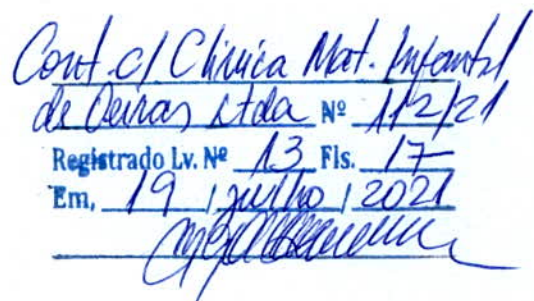 Cont. c/ Clinica Mat. Infantil
de Oeiras Ltda Nº 112/21
Registrado Lv. Nº 13 Fls. 17
Em, 19 / julho / 2021